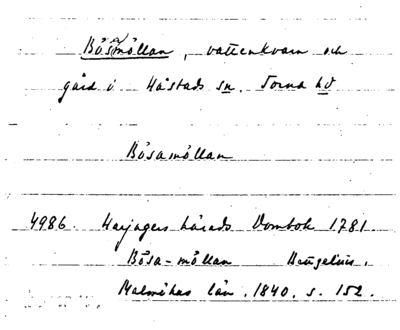 Bösamöllan, vattenkvarn och
gård i Håstads sn. Torna hd
Bösamöllan
4986. Harjagers härads Dombok 1781.
Bösa-möllan Bengelius.
Malmöhus län. 1840. s. 152.